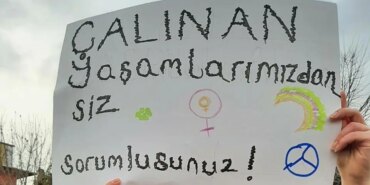 ÇALINAN
Yaşamlarımızdan
siz
sorumlusunuz!